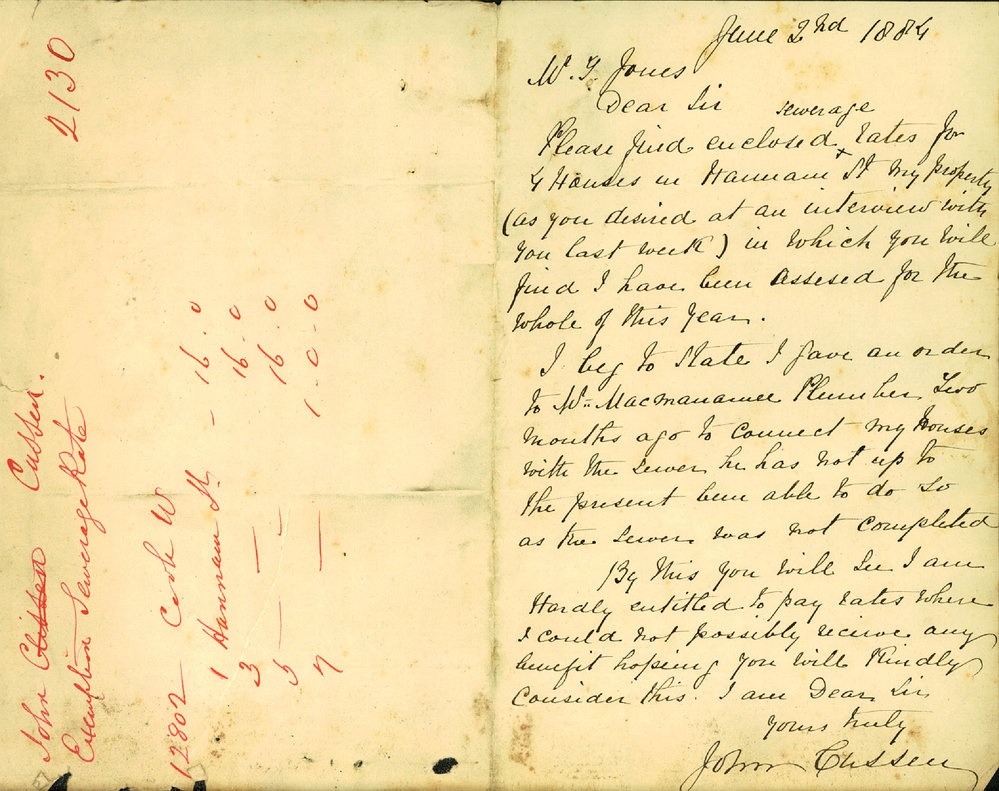 2130
John C̶i̶s̶s̶e̶n̶ Cussen.
Exemption Sewerage Rate
12802 — Cook W
1 Hannam St – 16.0
3 — 16.0
5 — 16.0
7 — 1.0.0
June 2nd 1884
Mr. T. Jones
Dear Sir
sewerage
Please find enclosed x rates for
4 Houses in Hannam St my property
(as you desired at an interview with
you last week) in which you will
find I have been assesed for the
whole of this year.
I beg to state I gave an order
to Mr. Macmanamee Plumber Two
months ago to connect my Houses
with the sewer he has not up to
the present been able to do so
as the sewer was not completed
By this you will see I am
Hardly entitled to pay rates where
I could not possibly recieve any
benefit hoping you will Kindly
Consider this. I am Dear Sir
yours truly
John Cussen